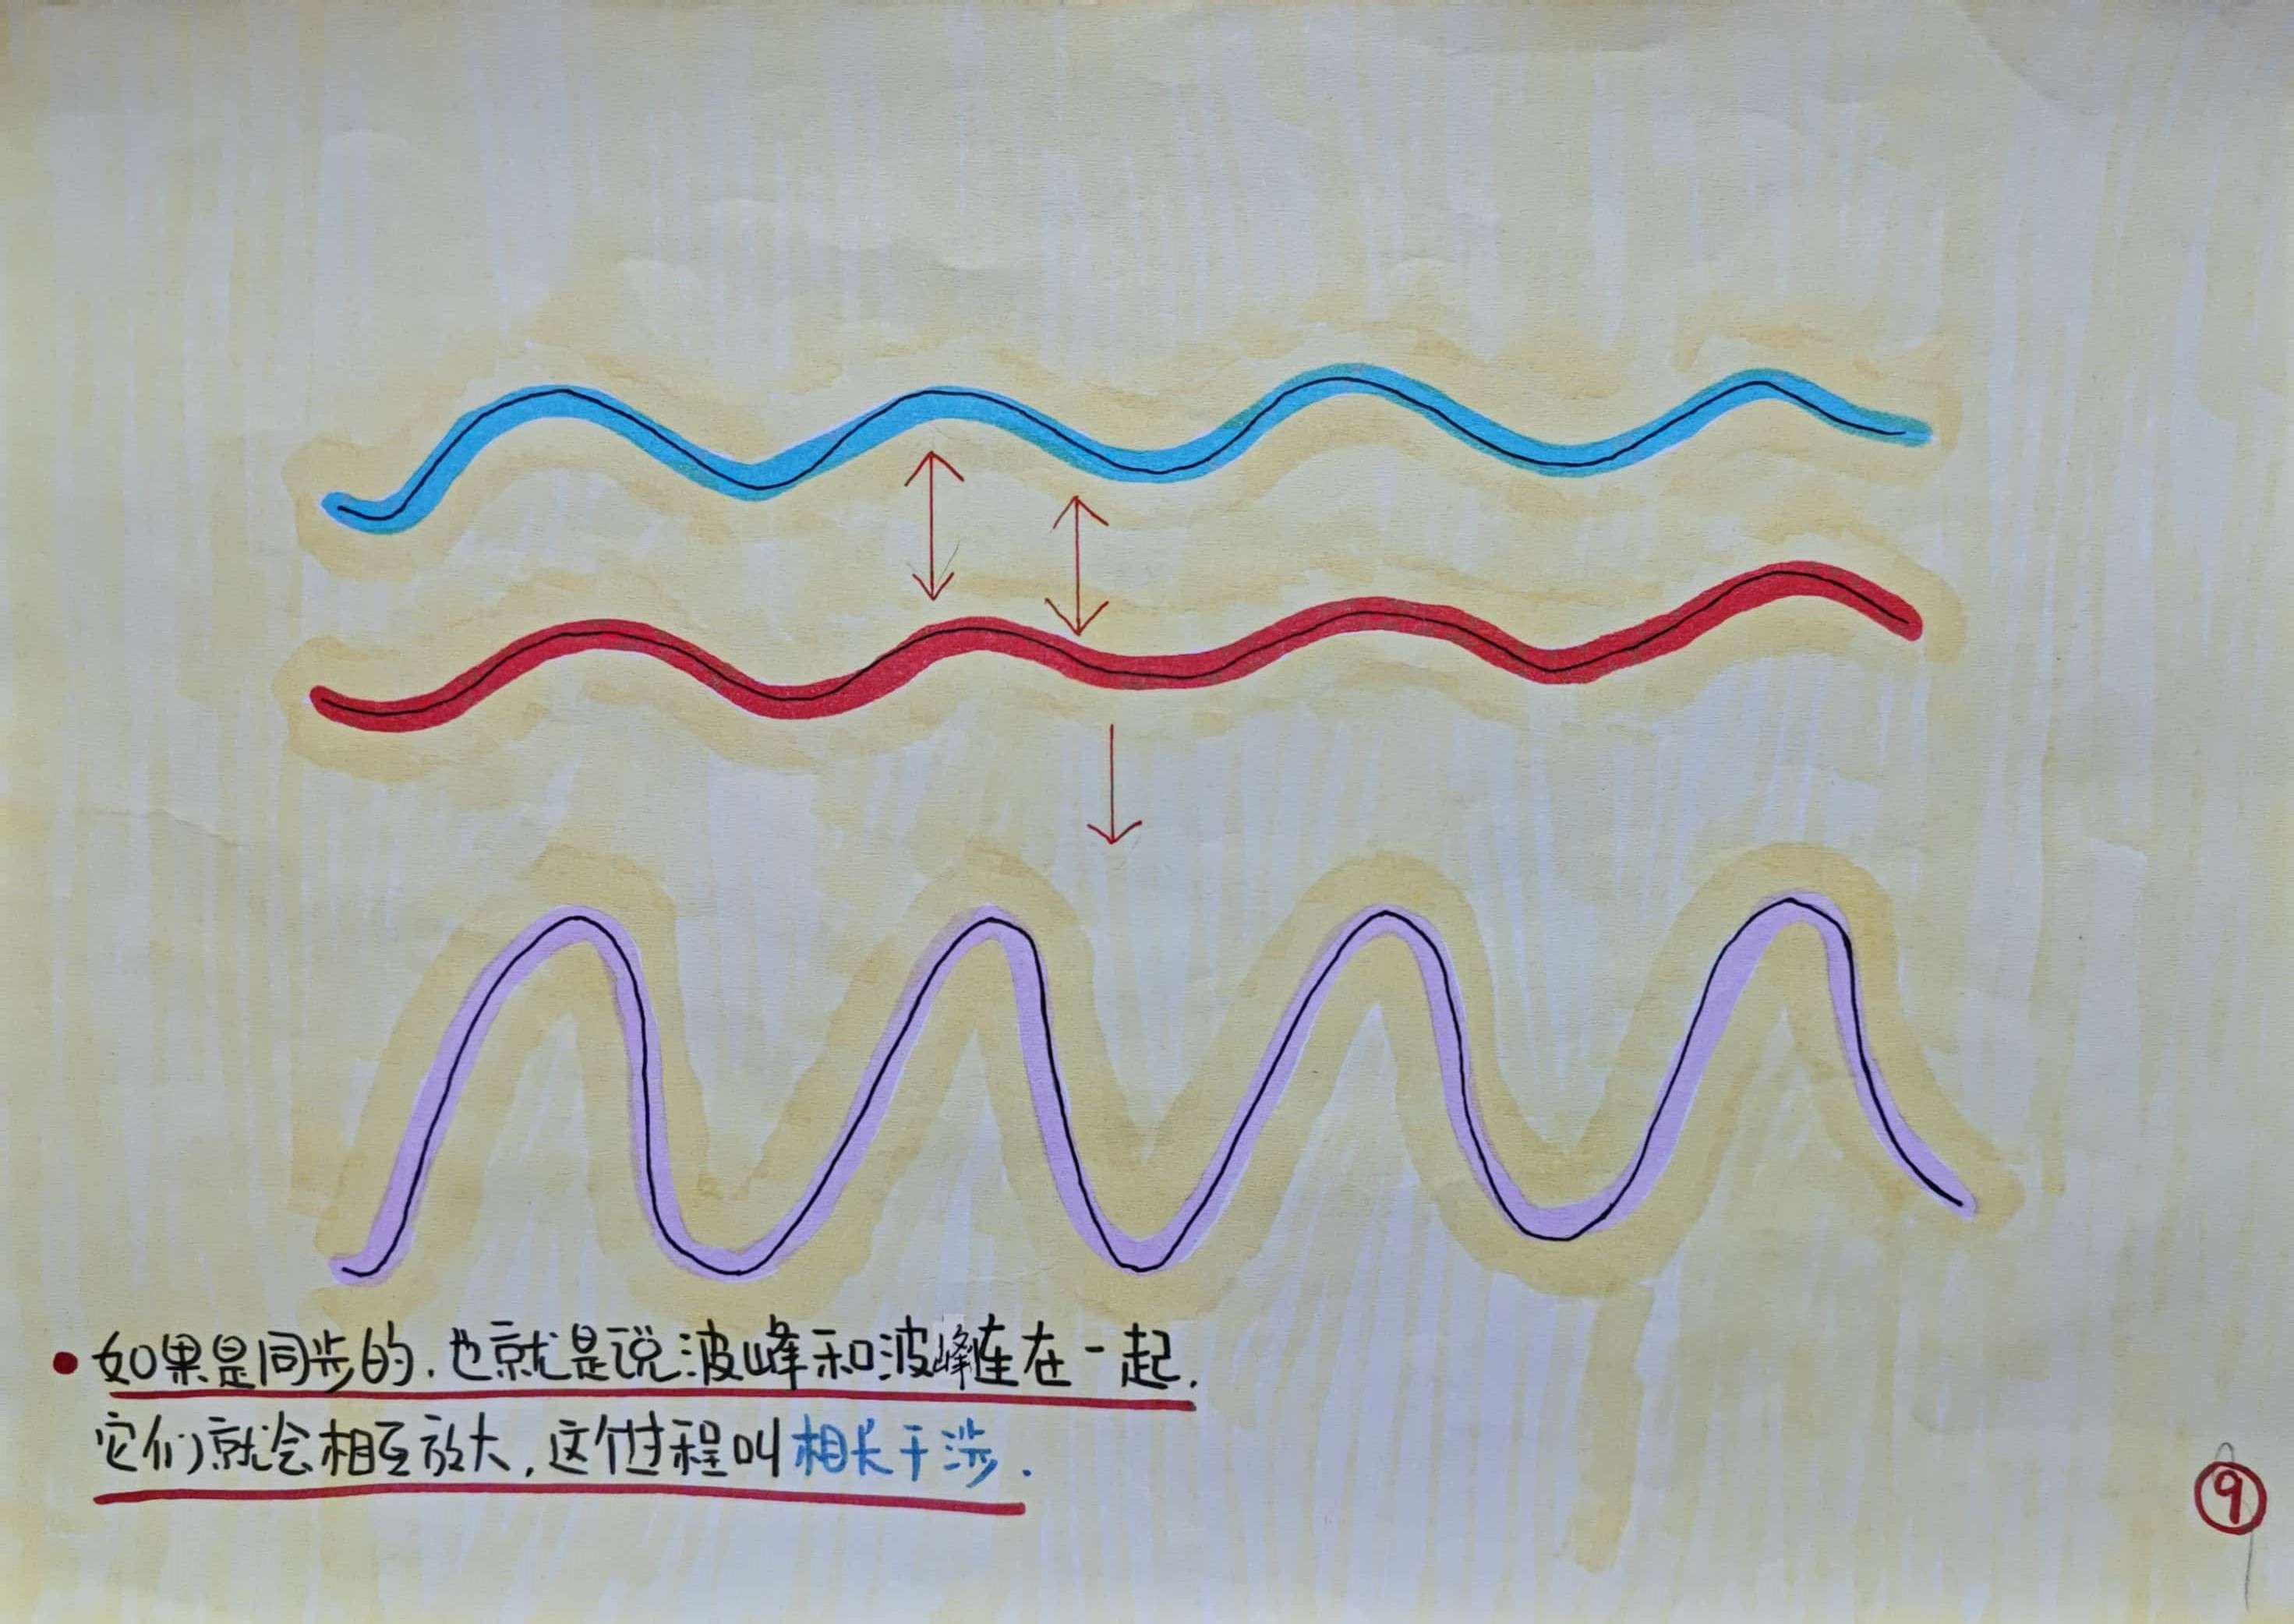 •如果是同步的,也就是说波峰和波峰连在一起.
它们就会相互放大,这个过程叫相长干涉.
9